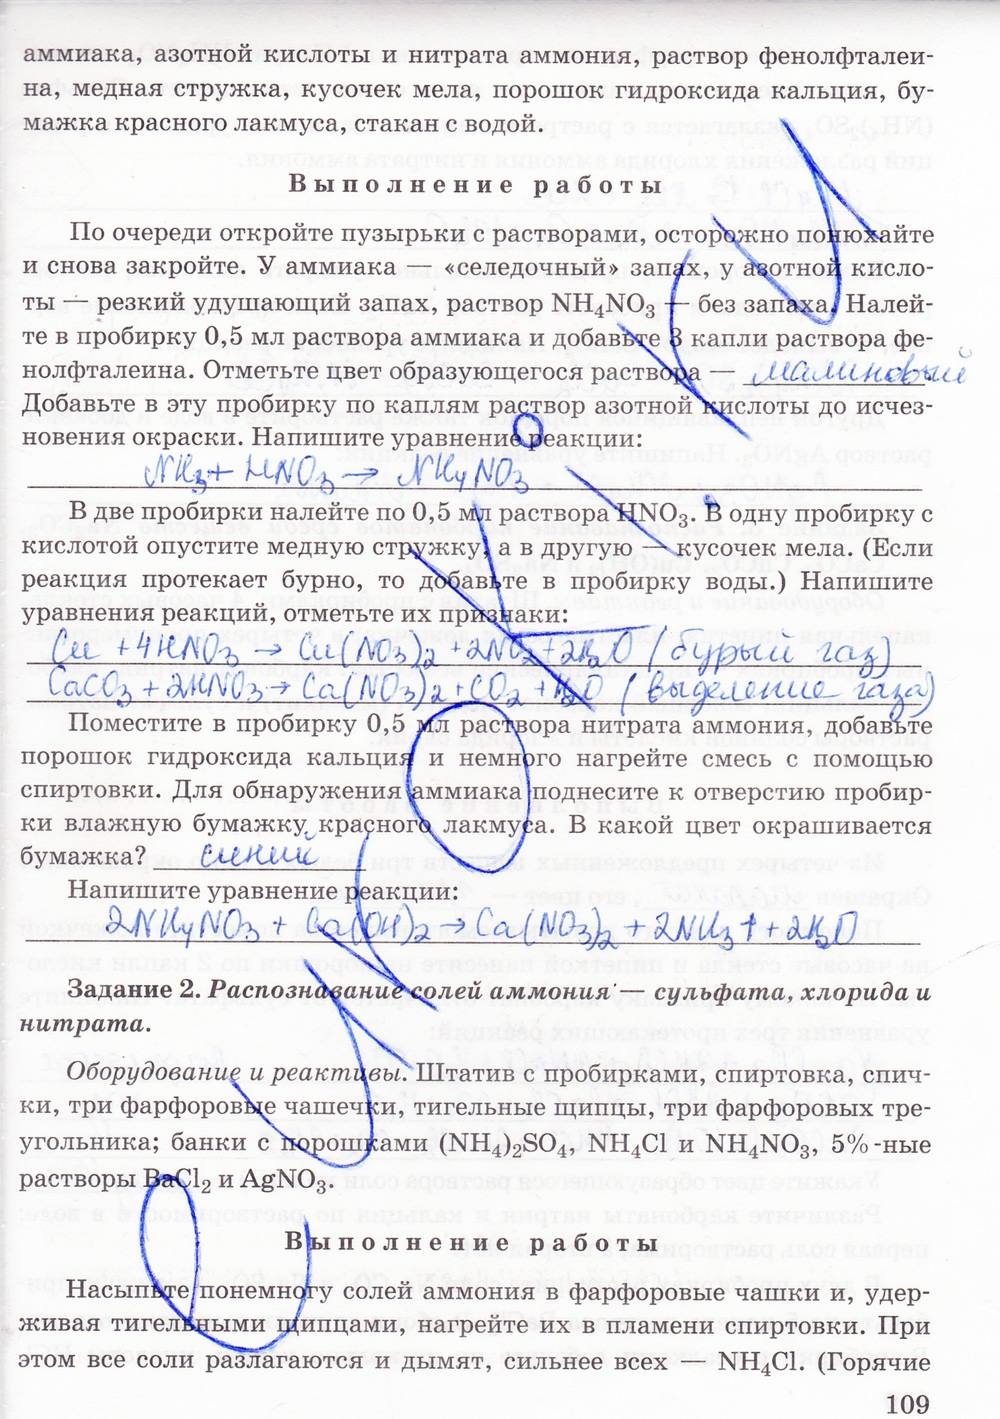 аммиака, азотной кислоты и нитрата аммония, раствор фенолфталеи-
на, медная стружка, кусочек мела, порошок гидроксида кальция, бу-
мажка красного лакмуса, стакан с водой.
Выполнение работы
По очереди откройте пузырьки с растворами, осторожно понюхайте
и снова закройте. У аммиака — «селедочный» запах, у азотной кисло-
ты — резкий удушающий запах, раствор NH₄NO₃ — без запаха. Налей-
те в пробирку 0,5 мл раствора аммиака и добавьте 3 капли раствора фе-
нолфталеина. Отметьте цвет образующегося раствора — малиновый.
Добавьте в эту пробирку по каплям раствор азотной кислоты до исчез-
новения окраски. Напишите уравнение реакции:
NH₃ + HNO₃ → NH₄NO₃
В две пробирки налейте по 0,5 мл раствора HNO₃. В одну пробирку с
кислотой опустите медную стружку, а в другую — кусочек мела. (Если
реакция протекает бурно, то добавьте в пробирку воды.) Напишите
уравнения реакций, отметьте их признаки:
Cu + 4HNO₃ → Cu(NO₃)₂ + 2NO₂ + 2H₂O (бурый газ)
CaCO₃ + 2HNO₃ → Ca(NO₃)₂ + CO₂ + H₂O (выделение газа)
Поместите в пробирку 0,5 мл раствора нитрата аммония, добавьте
порошок гидроксида кальция и немного нагрейте смесь с помощью
спиртовки. Для обнаружения аммиака поднесите к отверстию пробир-
ки влажную бумажку красного лакмуса. В какой цвет окрашивается
бумажка? синий
Напишите уравнение реакции:
2NH₄NO₃ + Ca(OH)₂ → Ca(NO₃)₂ + 2NH₃↑ + 2H₂O
Задание 2. Распознавание солей аммония — сульфата, хлорида и
нитрата.
Оборудование и реактивы. Штатив с пробирками, спиртовка, спич-
ки, три фарфоровые чашечки, тигельные щипцы, три фарфоровых тре-
угольника; банки с порошками (NH₄)₂SO₄, NH₄Cl и NH₄NO₃, 5%-ные
растворы BaCl₂ и AgNO₃.
Выполнение работы
Насыпьте понемногу солей аммония в фарфоровые чашки и, удер-
живая тигельными щипцами, нагрейте их в пламени спиртовки. При
этом все соли разлагаются и дымят, сильнее всех — NH₄Cl. (Горячие
109